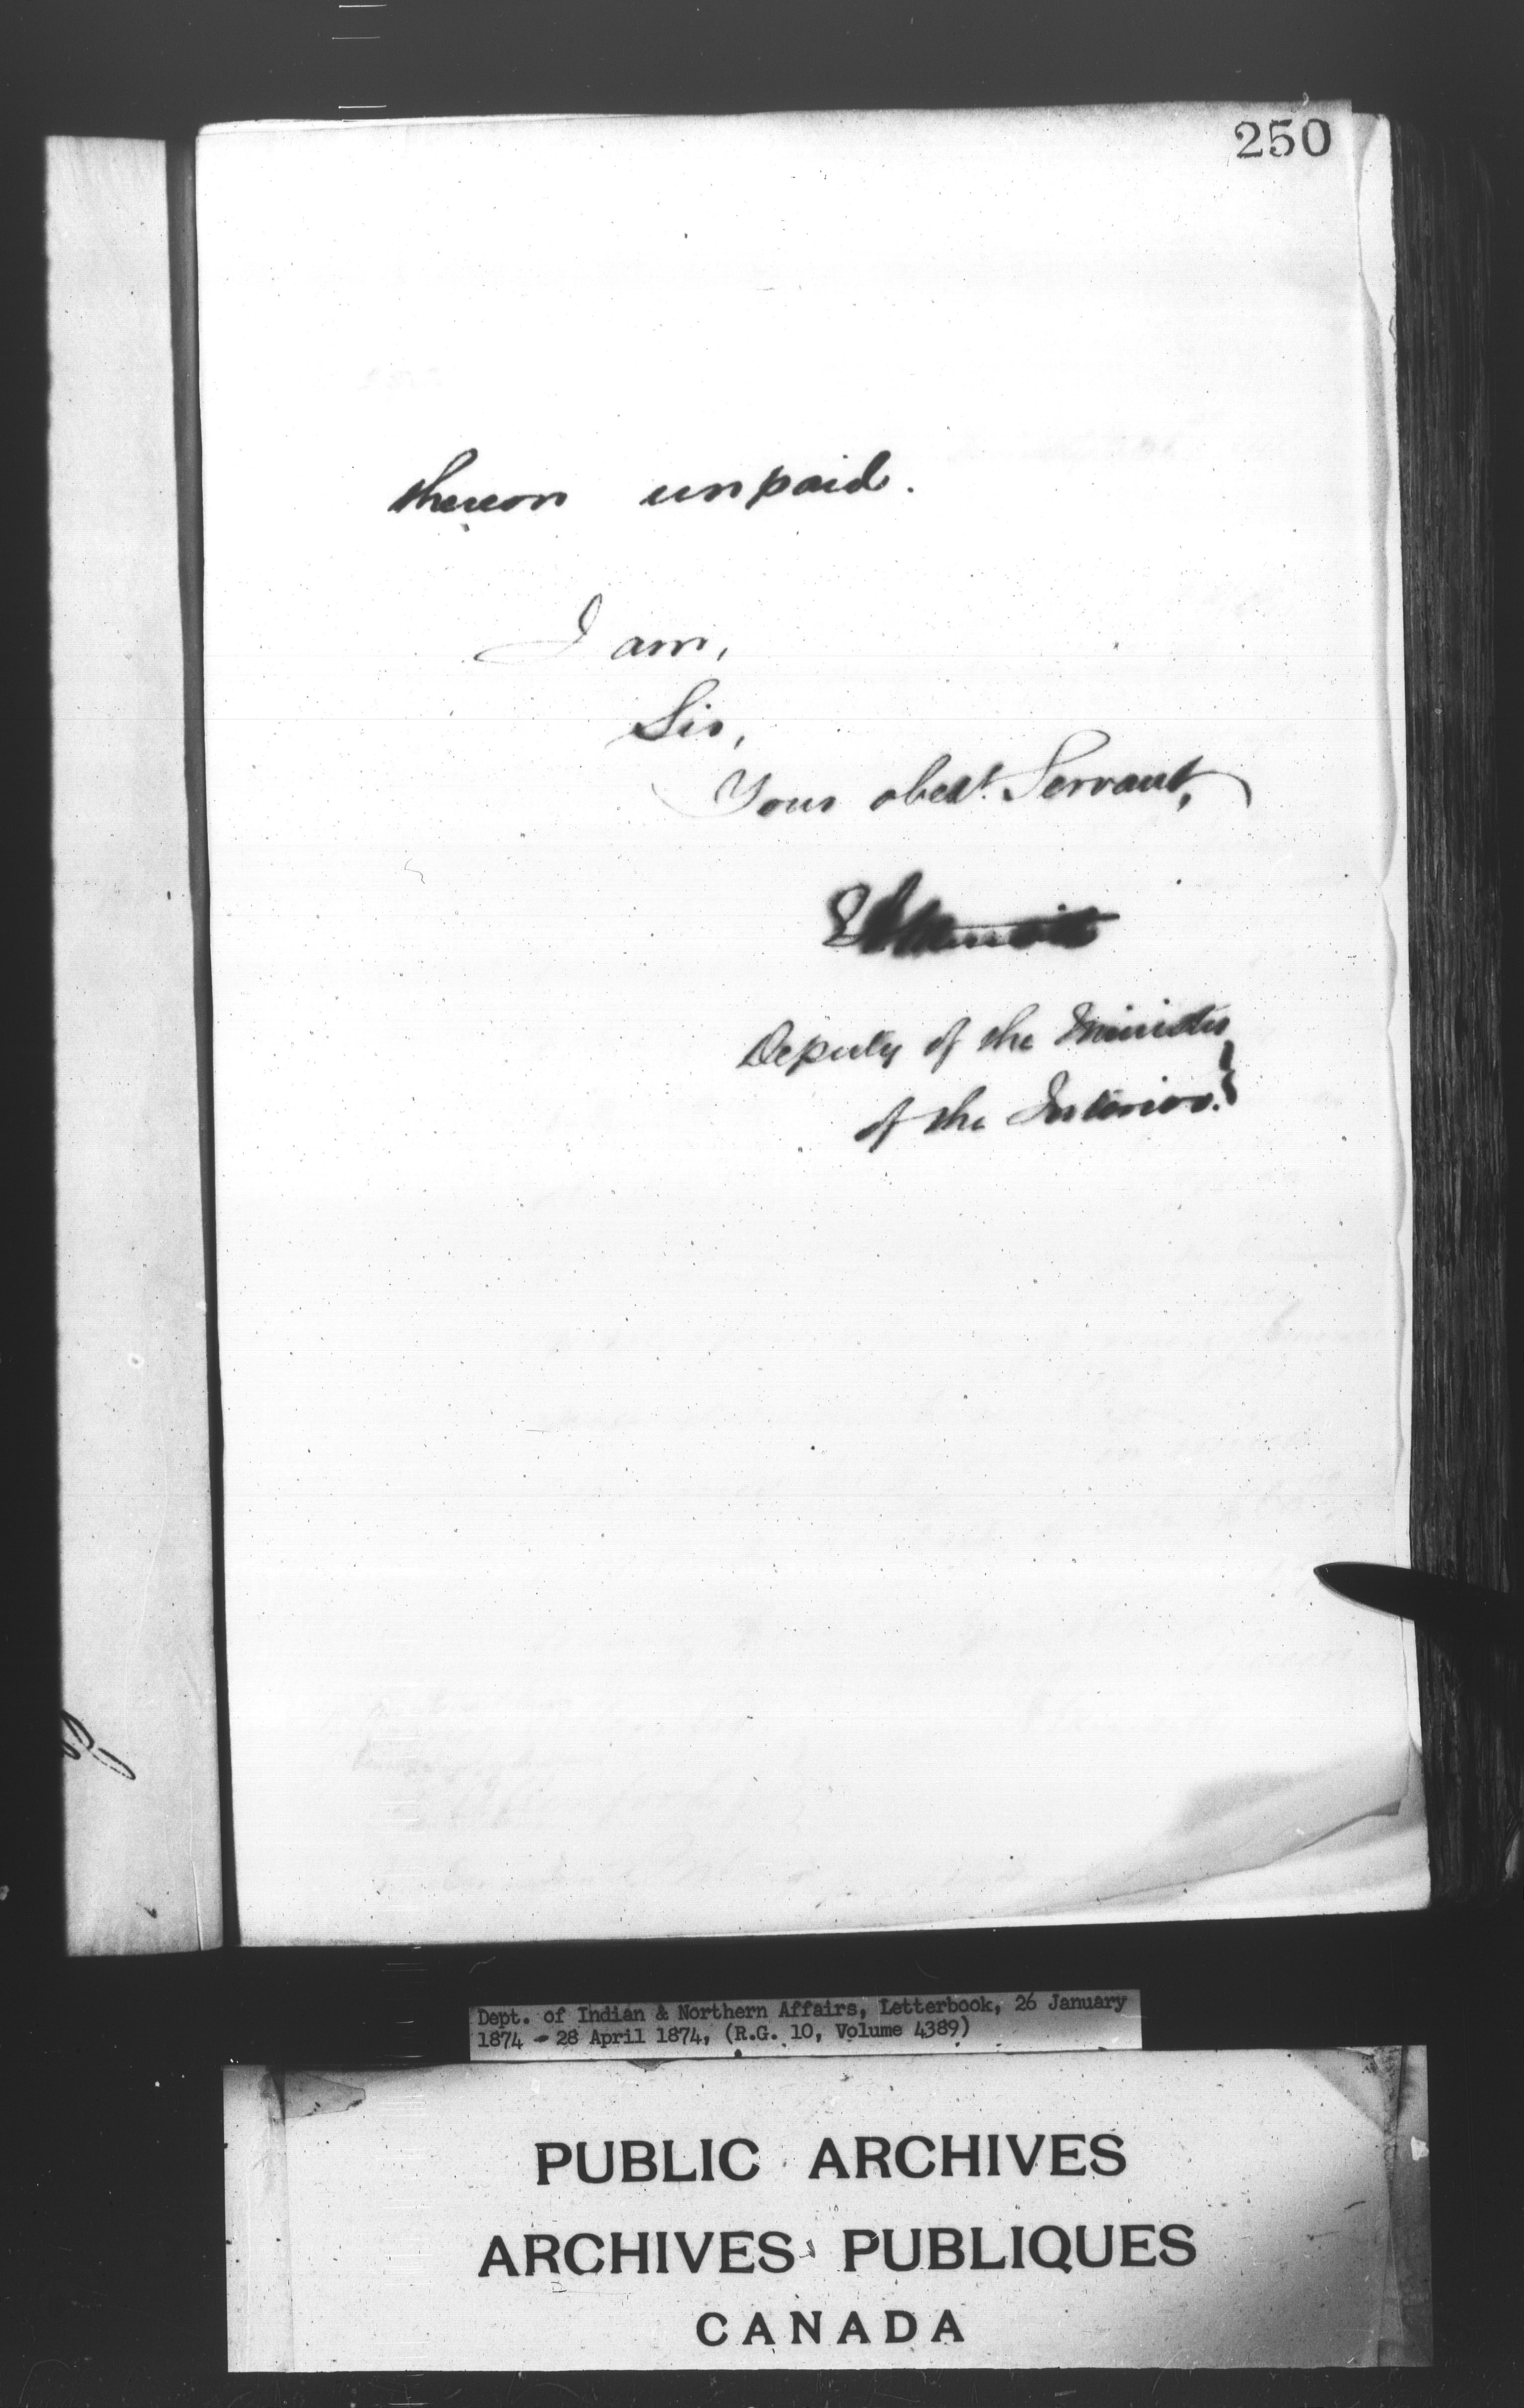 250
thereon unpaid.
I am,
Sir,
Your obedt. Servant,
Deputy of the Minister
of the Interior.
Dept. of Indian & Northern Affairs, Letterbook, 26 January
1874 - 28 April 1874, (R.G. 10, Volume 4389)
PUBLIC ARCHIVES
ARCHIVES PUBLIQUES
CANADA